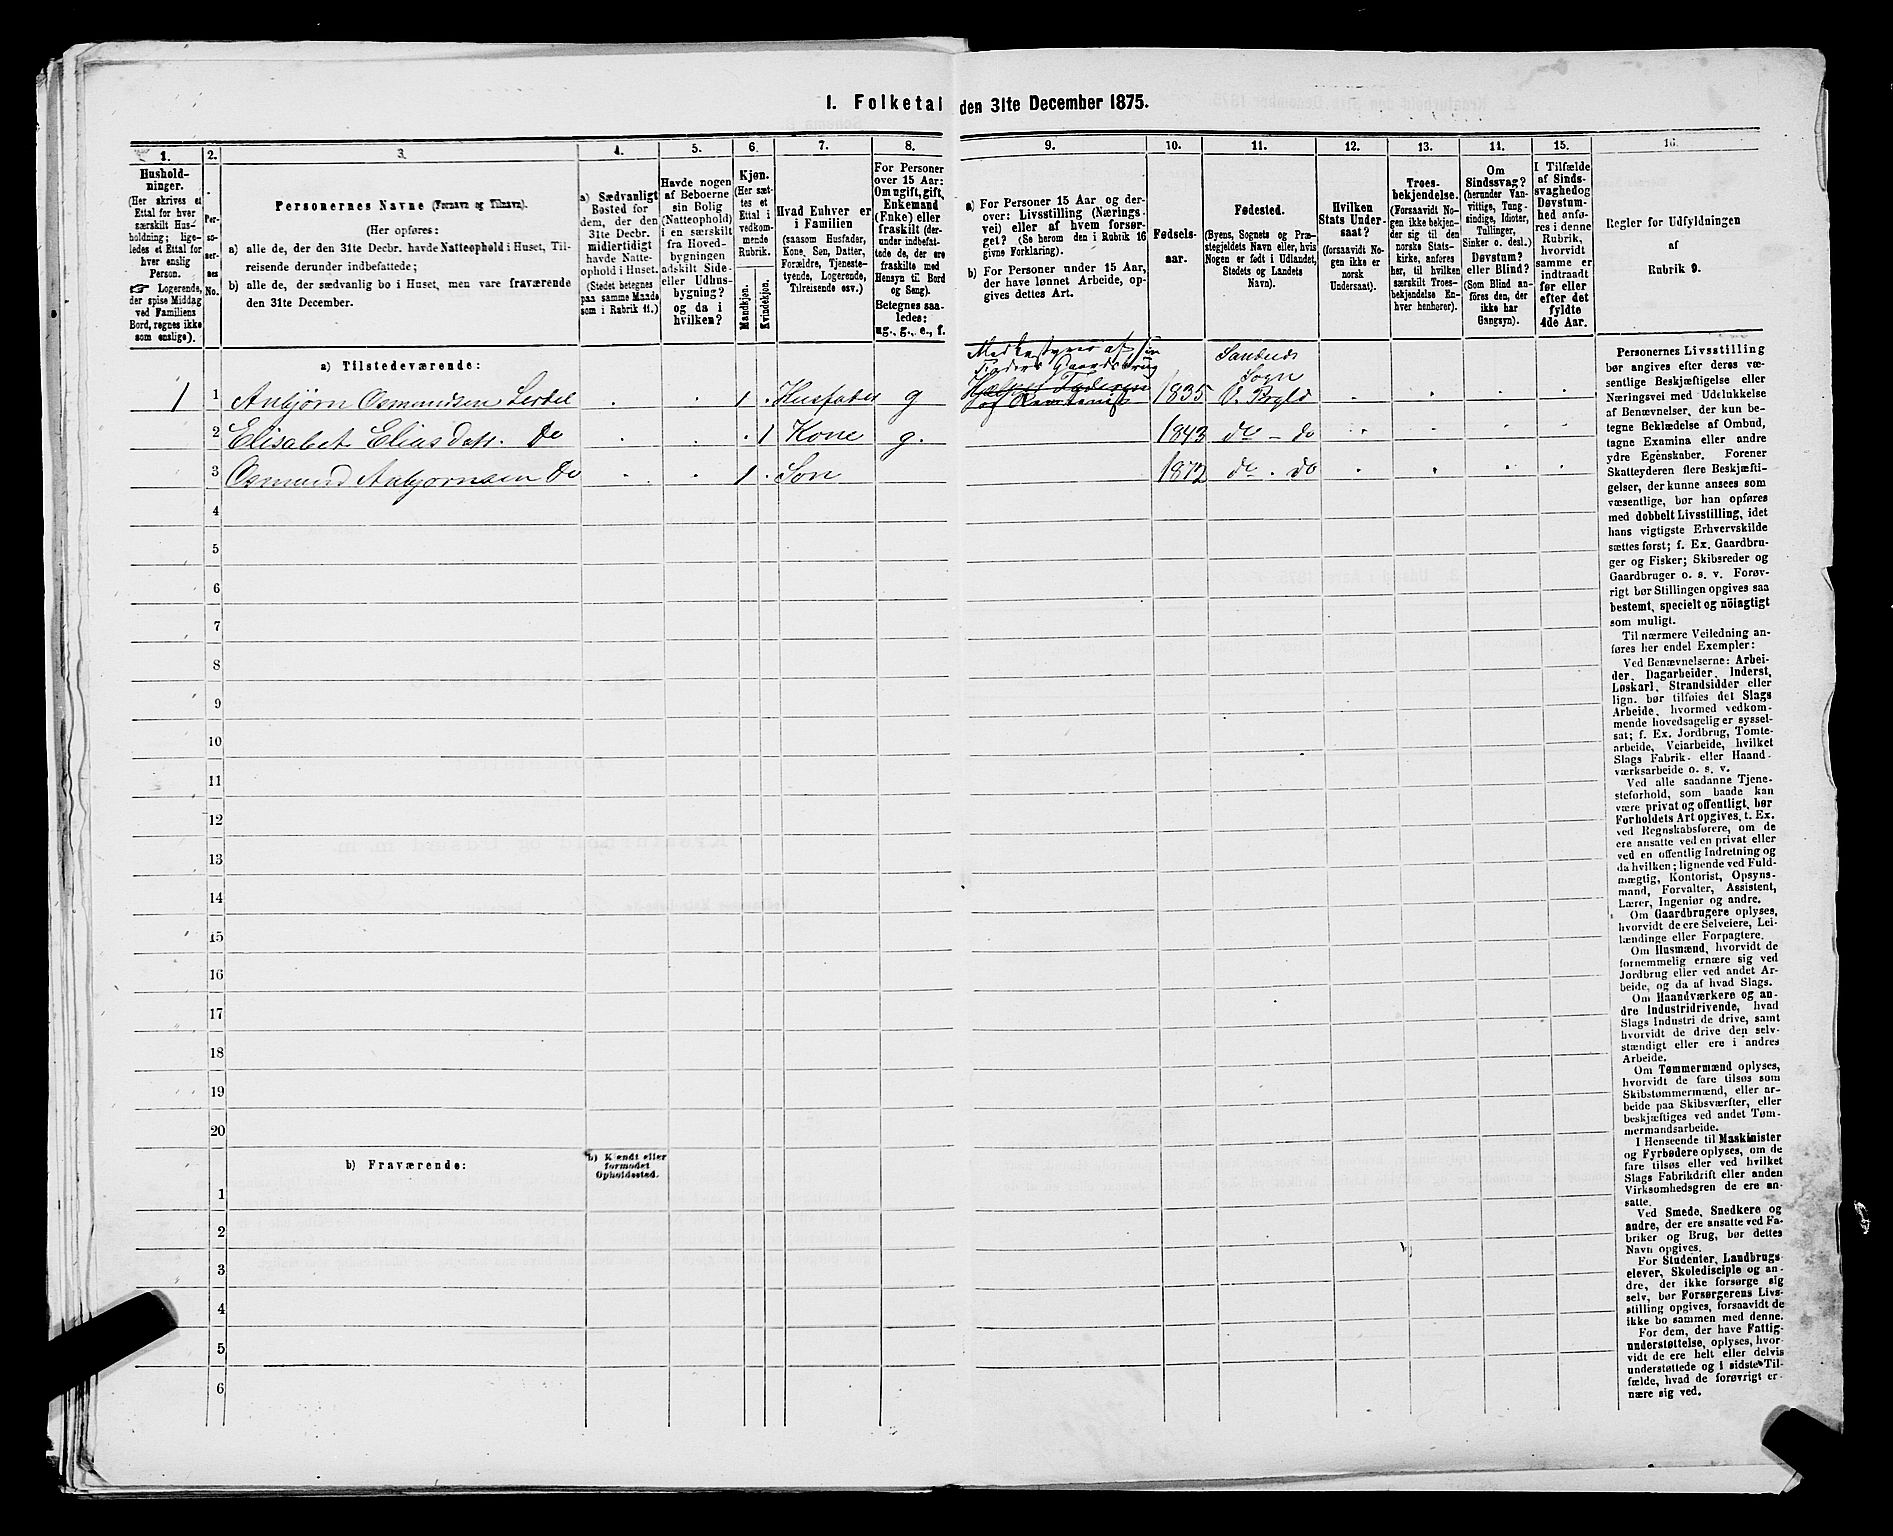 1. Folketal den 31te December 1875.
1.
Hushold-
ninger.
(Her skrives et
Ettal for hver
særskilt Hus-
holdning; lige-
ledes et Ettal for
hver enslig
Person.
☞ Logerende,
der spise Middag
ved Familiens
Bord, regnes ikke
som enslige).
2.
Per-
so-
ner-
nes
No.
3.
Personernes Navne (Fornavn og Tilnavn).
(Her opføres:
a) alle de, der den 31te Decbr. havde Natteophold i Huset, Til-
reisende derunder indbefattede;
b) alle de, der sædvanlig bo i Huset, men vare fraværende
den 31te December.
4.
a) Sædvanligt
Bosted for
dem, der den
31te Decbr.
midlertidigt
havde Natte-
ophold i Huset.
(Stedet betegnes
paa samme Maade
som i Rubrik 11.)
5.
Havde nogen
af Beboerne
sin Bolig
(Natteophold)
i en særskilt
fra Hoved-
bygningen
adskilt Side-
eller Udhus-
bygning?
og da i
hvilken?
6.
Kjøn.
(Her sæt-
tes et
Ettal i
vedkom-
mende
Rubrik.
Mandkjøn.
Kvindekjøn.
7.
Hvad Enhver er
i Familien
(saasom Husfader,
Kone, Søn, Datter,
Forældre, Tjeneste-
tyende, Logerende,
Tilreisende osv.)
8.
For Personer
over 15 Aar:
Om ugift, gift,
Enkemand
(Enke) eller
fraskilt (der-
under indbefat-
tede de, der ere
fraskilte med
Hensyn til Bord
og Seng).
Betegnes saa-
ledes:
ug., g., e., f.
9.
a) For Personer 15 Aar og der-
over: Livsstilling (Nærings-
vei) eller af hvem forsør-
get? (Se herom den i Rubrik 16
givne Forklaring).
b) For Personer under 15 Aar,
der have lønnet Arbeide, op-
gives dettes Art.
10.
Fødsels-
aar.
11.
Fødested.
(Byens, Sognets og Præ-
stegjeldets Navn eller, hvis
Nogen er født i Udlandet,
Stedets og Landets
Navn).
12.
Hvilken
Stats Under-
saat?
(forsaavidt No-
gen ikke er
norsk
Undersaat).
13.
Troes-
bekjendelse.
(Forsaavidt No-
gen ikke bekjen-
der sig til den
norske Stats-
kirke, anføres
her, til hvilken
særskilt Troes-
bekjendelse En-
hver henhører).
14.
Om
Sindssvag?
(herunder Van-
vittige, Tung-
sindige, Idioter,
Tullinger,
Sinker o. desl.)
Døvstum?
eller Blind?
(Som Blind an-
føres den, der
ikke har
Gangsyn).
15.
I Tilfælde
af Sinds-
svaghed og
Døvstum-
hed anfø-
res i denne
Rubrik,
hvorvidt
samme er
indtraadt
før eller
efter det
fyldte
4de Aar.
16.
Regler for Udfyldningen
af
Rubrik 9.
a) Tilstedeværende:
Medbestyrer af sin
Faders Gaardsbrug
Sanduds
Sogn
1 1 Anbjørn Osmundsen 1 Husfader g 1835
2 Elisabet Eliasdatt. Do 1 Kone g. 1843 do - do
3 Osmund Anbjørnsen Do 1 Søn 1872 do - do
4
5
6
7
8
9
10
11
12
13
14
15
16
17
18
19
20
b) Fraværende:
b) Kjendt eller
formodet
Opholdssted.
1
2
3
4
5
6
Personernes Livsstilling
bør angives efter deres væ-
sentlige Beskjæftigelse eller
Næringsvei med Udelukkelse
af Benævnelser, der kun be-
tegne Beklædelse af Ombud,
tagne Examina eller andre
ydre Egenskaber. Forener
Skatteyderen flere Beskjæfti-
gelser, der kunne ansees som
væsentlige, bør han opføres
med dobbelt Livsstilling, idet
hans vigtigste Erhvervskilde
sættes først; f. Ex. Gaardbru-
ger og Fisker; Skibsreder og
Gaardbruger o. s. v. Forøv-
rigt bør Stillingen opgives saa
bestemt, specielt og nöiagtigt
som muligt.
Til nærmere Veiledning an-
føres her endel Exempler:
Ved Benævnelserne: Arbei-
der, Dagarbeider, Inderst,
Løskarl, Strandsidder eller
lign. bør tilføies det Slags
Arbeide, hvormed vedkom-
mende hovedsagelig er syssel-
sat; f. Ex. Jordbrug, Tomte-
arbeide, Veiarbeide, hvilket
Slags Fabrik- eller Haand-
værksarbeide o. s. v.
Ved alle saadanne Tjene-
steforhold, som baade kan
være privat og offentligt, bør
Forholdets Art opgives, t. Ex.
ved Regnskabsførere, om de
ere ansatte ved en privat eller
ved en offentlig Indretning og
da hvilken; lignende ved Fuld-
mægtig, Kontorist, Opsyns-
mand, Forvalter, Assistent,
Lærer, Ingeniør og andre.
Om Gaardbrugere oplyses,
hvorvidt de ere Selveiere, Lei-
lændinge eller Forpagtere.
Om Husmænd, hvorvidt de
fornemmelig ernære sig ved
Jordbrug eller ved andet Ar-
beide, og da af hvad Slags.
Om Haandværkere og an-
dre Industridrivende, hvad
Slags Industri de drive, samt
hvorvidt de drive den selv-
stændigt eller ere i andres
Arbeide.
Om Tømmermænd oplyses,
hvorvidt de fare tilsøs som
Skibstømmermænd, eller ar-
beide paa Skibsværfter, eller
beskjæftiges ved andet Tøm-
mermandsarbeide.
I Henseende til Maskinister
og Fyrbødere oplyses, om de
fare tilsøs eller ved hvilket
Slags Fabrikdrift eller anden
Virksomhedsgren de ere an-
satte.
Ved Smede, Snedkere og
andre, der ere ansatte ved Fa-
briker og Brug, bør dettes
Navn opgives.
For Studenter, Landbrugs-
elever, Skoledisciple og an-
dre, der ikke forsørge sig
selv, bør Forsørgerens Livs-
stilling opgives, forsaavidt de
ikke bo sammen med denne.
For dem, der have Fattig-
understøttelse, oplyses, hvor-
vidt de ere helt eller delvis
understøttede og i sidste Til-
fælde, hvad de forøvrigt er-
nære sig ved.